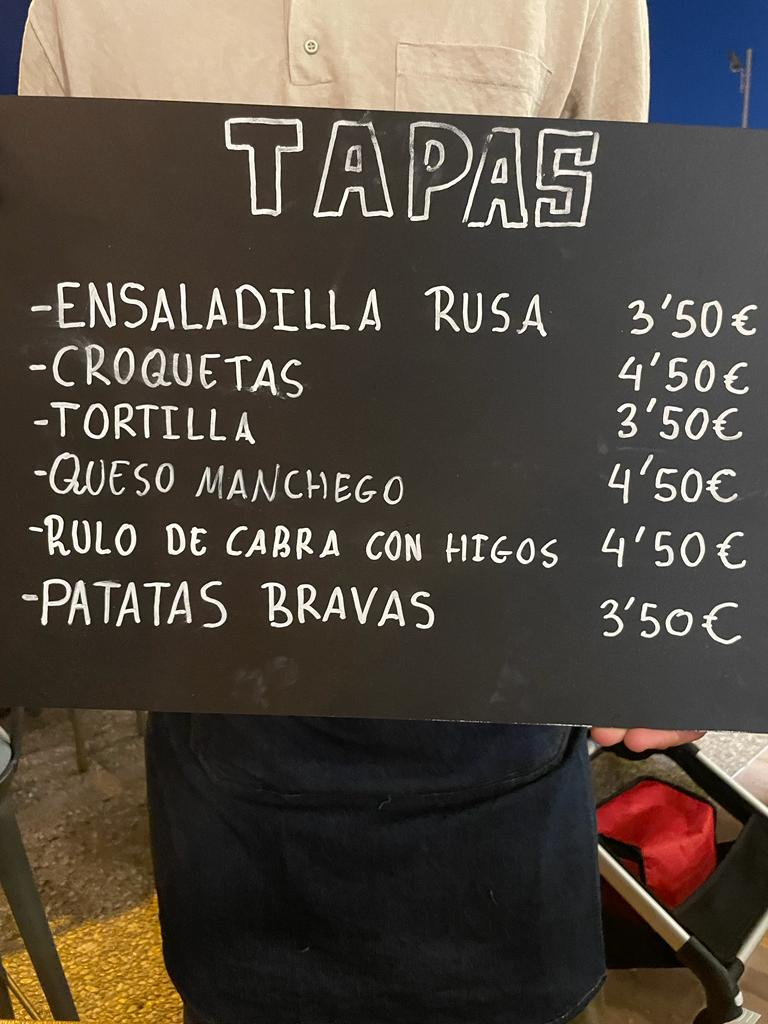 TAPAS
-ENSALADILLA RUSA 3'50€
-CROQUETAS 4'50€
-TORTILLA 3'50€
-QUESO MANCHEGO 4'50€
-RULO DE CABRA CON HIGOS 4'50€
-PATATAS BRAVAS 3'50€